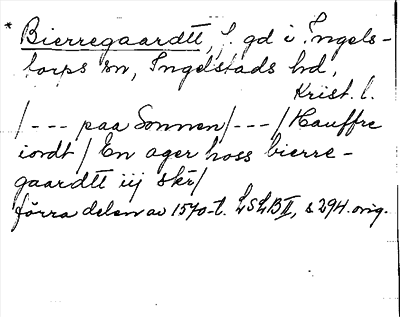 * Bierregaardtt, f. gd i Ingels-
torps sn, Ingelstads hd,
Krist. l.
/--- paa Sonnen/---/Hauffre
iordt/ En ager hoss bierre-
gaardtt iij skr/
förra delen av 1570-t. LSLB II, s 294. orig.